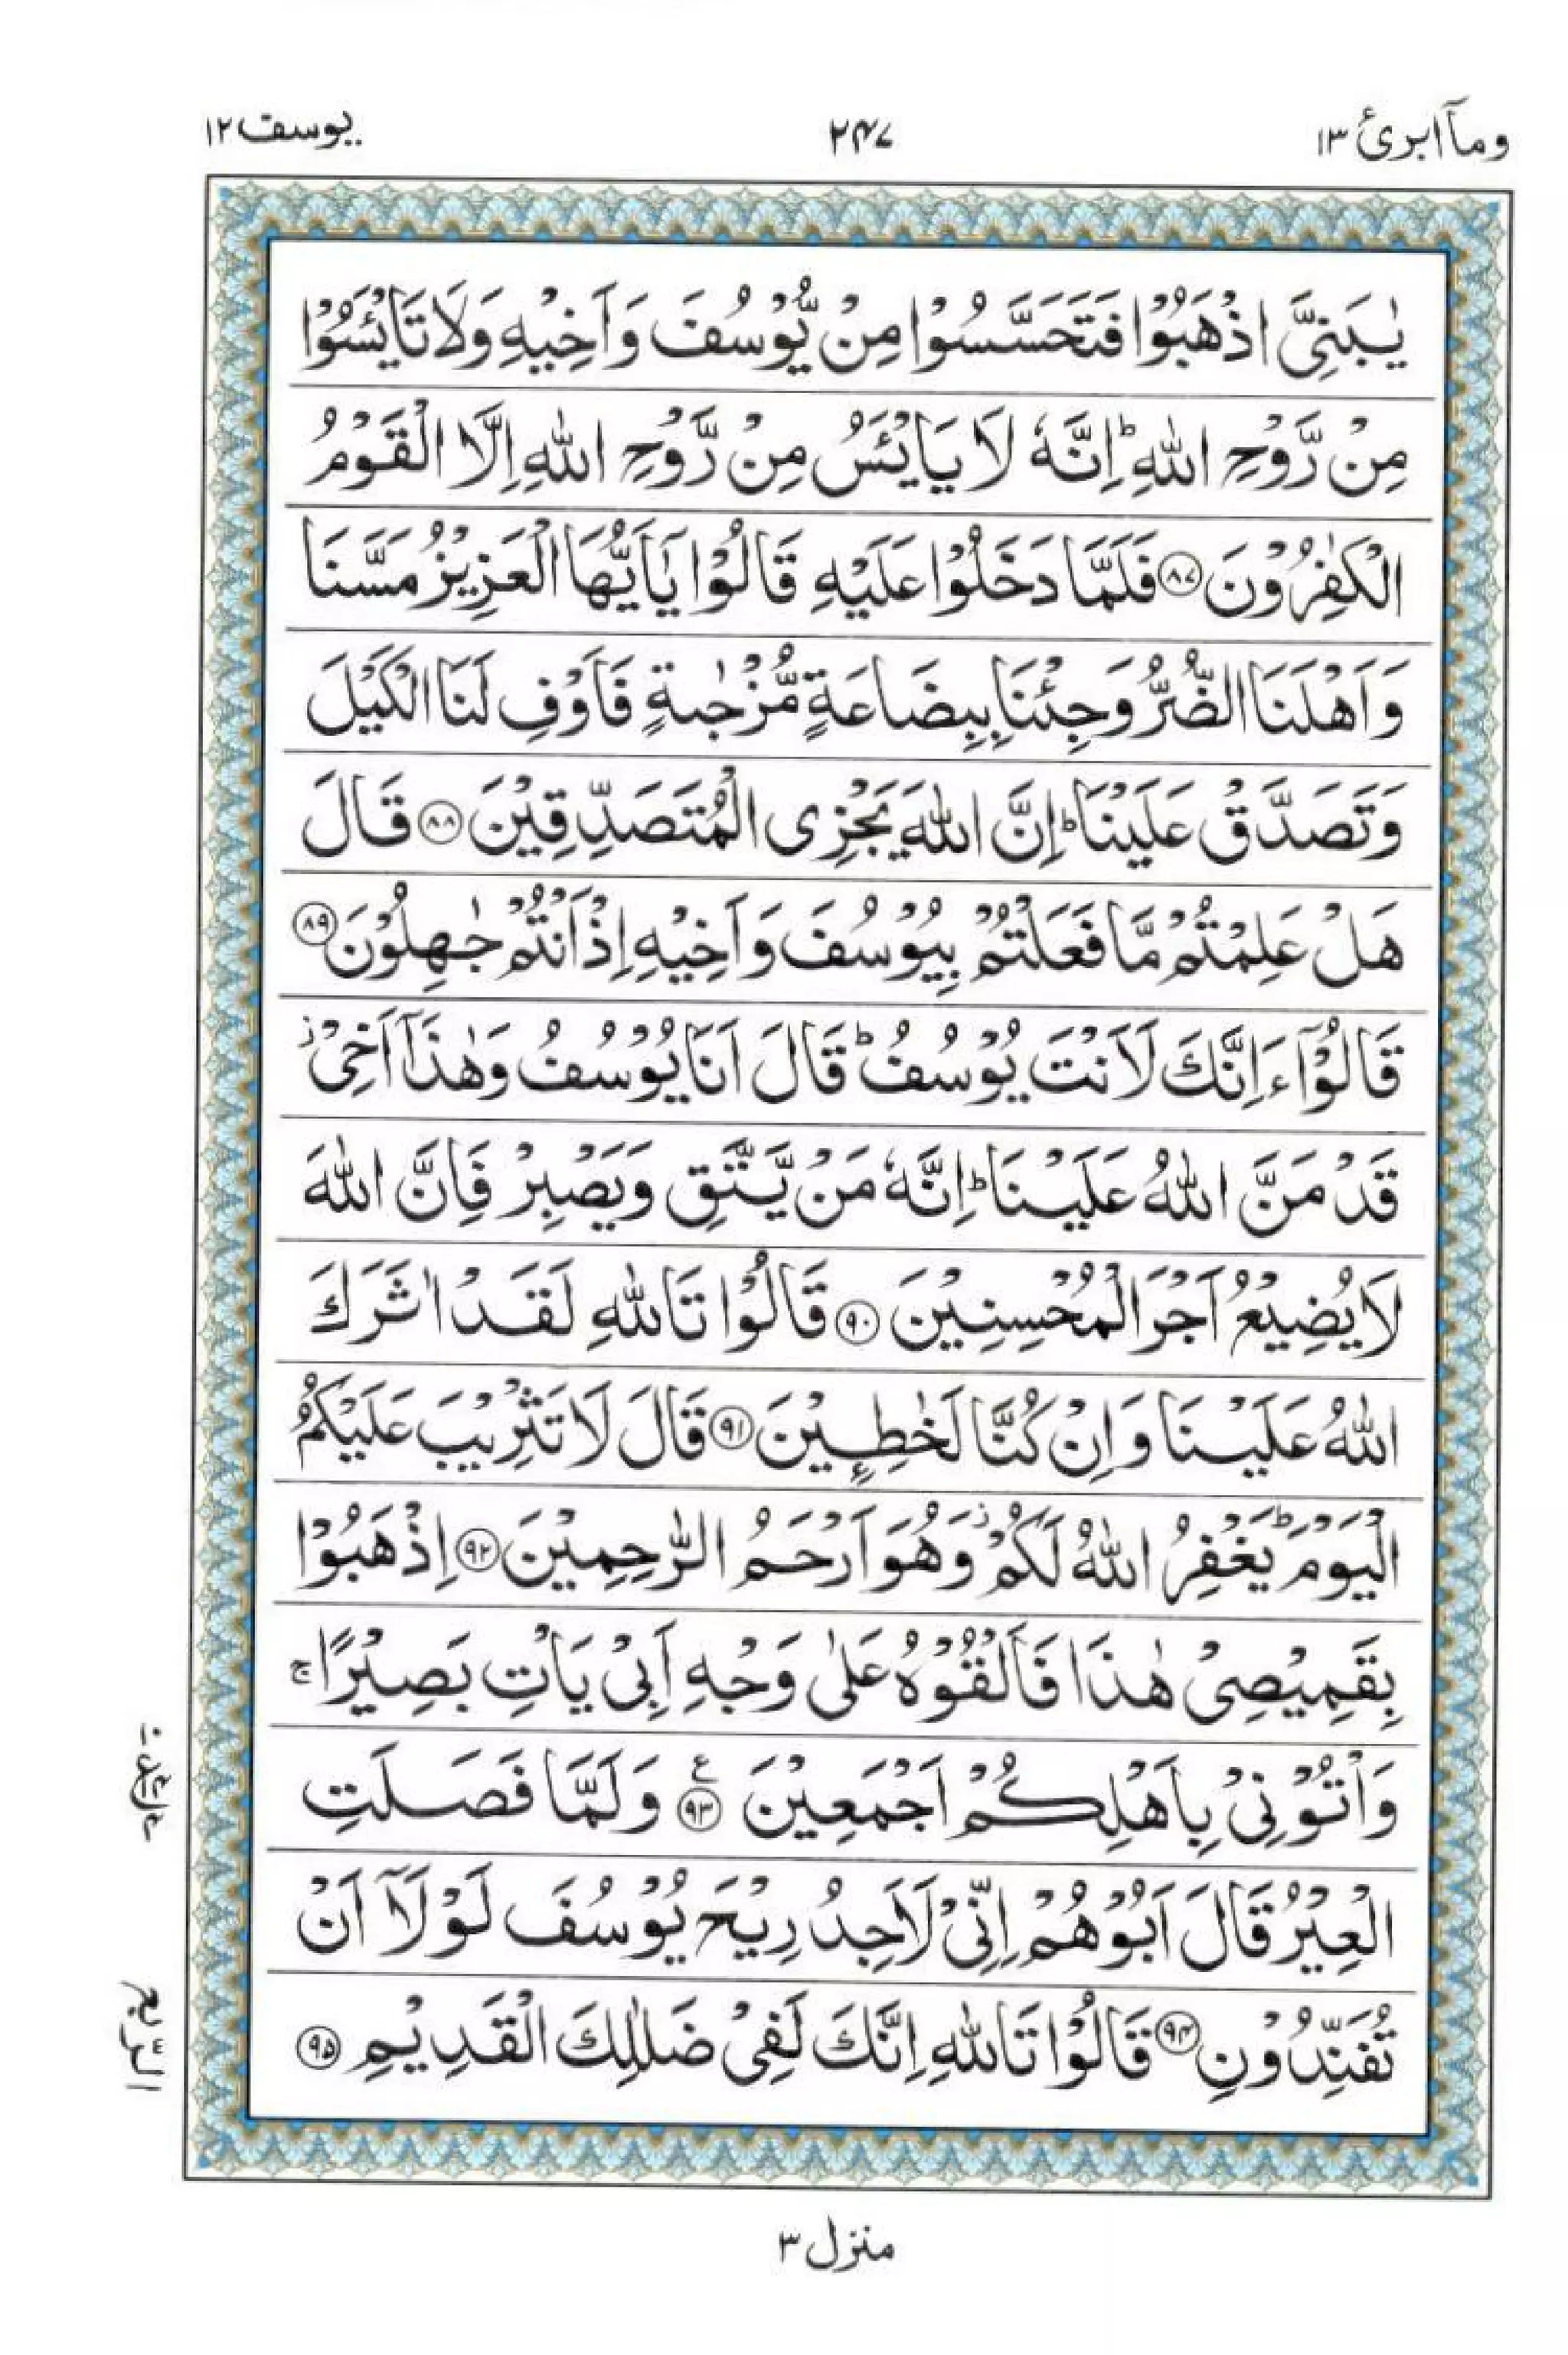 ومآ ابرئ ١٣
٢٤٧
يوسف ١٢
يٰبَنِيَّ اذْهَبُوْا فَتَحَسَّسُوْا مِنْ يُّوْسُفَ وَاَخِيْهِ وَلَا تَايْئَسُوْا
مِنْ رَّوْحِ اللّٰهِ ؕ اِنَّهٗ لَا يَايْئَسُ مِنْ رَّوْحِ اللّٰهِ اِلَّا الْقَوْمُ
الْكٰفِرُوْنَ ۝٨٧ فَلَمَّا دَخَلُوْا عَلَيْهِ قَالُوْا يٰۤاَيُّهَا الْعَزِيْزُ مَسَّنَا
وَاَهْلَنَا الضُّرُّ وَجِئْنَا بِبِضَاعَةٍ مُّزْجٰىةٍ فَاَوْفِ لَنَا الْكَيْلَ
وَتَصَدَّقْ عَلَيْنَا ؕ اِنَّ اللّٰهَ يَجْزِى الْمُتَصَدِّقِيْنَ ۝٨٨ قَالَ
هَلْ عَلِمْتُمْ مَّا فَعَلْتُمْ بِيُوْسُفَ وَاَخِيْهِ اِذْ اَنْتُمْ جٰهِلُوْنَ ۝٨٩
قَالُوْۤا ءَاِنَّكَ لَاَنْتَ يُوْسُفُ ؕ قَالَ اَنَا يُوْسُفُ وَهٰذَاۤ اَخِىْ ز
قَدْ مَنَّ اللّٰهُ عَلَيْنَا ؕ اِنَّهٗ مَنْ يَّتَّقِ وَيَصْبِرْ فَاِنَّ اللّٰهَ
لَا يُضِيْعُ اَجْرَ الْمُحْسِنِيْنَ ۝٩٠ قَالُوْا تَاللّٰهِ لَقَدْ اٰثَرَكَ
اللّٰهُ عَلَيْنَا وَاِنْ كُنَّا لَخٰطِـِٕيْنَ ۝٩١ قَالَ لَا تَثْرِيْبَ عَلَيْكُمُ
الْيَوْمَ ؕ يَغْفِرُ اللّٰهُ لَكُمْ ز وَهُوَ اَرْحَمُ الرّٰحِمِيْنَ ۝٩٢ اِذْهَبُوْا
بِقَمِيْصِىْ هٰذَا فَاَلْقُوْهُ عَلٰى وَجْهِ اَبِىْ يَاْتِ بَصِيْرًا ۚ
وَاْتُوْنِىْ بِاَهْلِكُمْ اَجْمَعِيْنَ ۝٩٣ ع وَلَمَّا فَصَلَتِ
الْعِيْرُ قَالَ اَبُوْهُمْ اِنِّىْ لَاَجِدُ رِيْحَ يُوْسُفَ لَوْلَاۤ اَنْ
تُفَنِّدُوْنِ ۝٩٤ قَالُوْا تَاللّٰهِ اِنَّكَ لَفِىْ ضَلٰلِكَ الْقَدِيْمِ ۝٩٥
الرّبع
منزل ٣